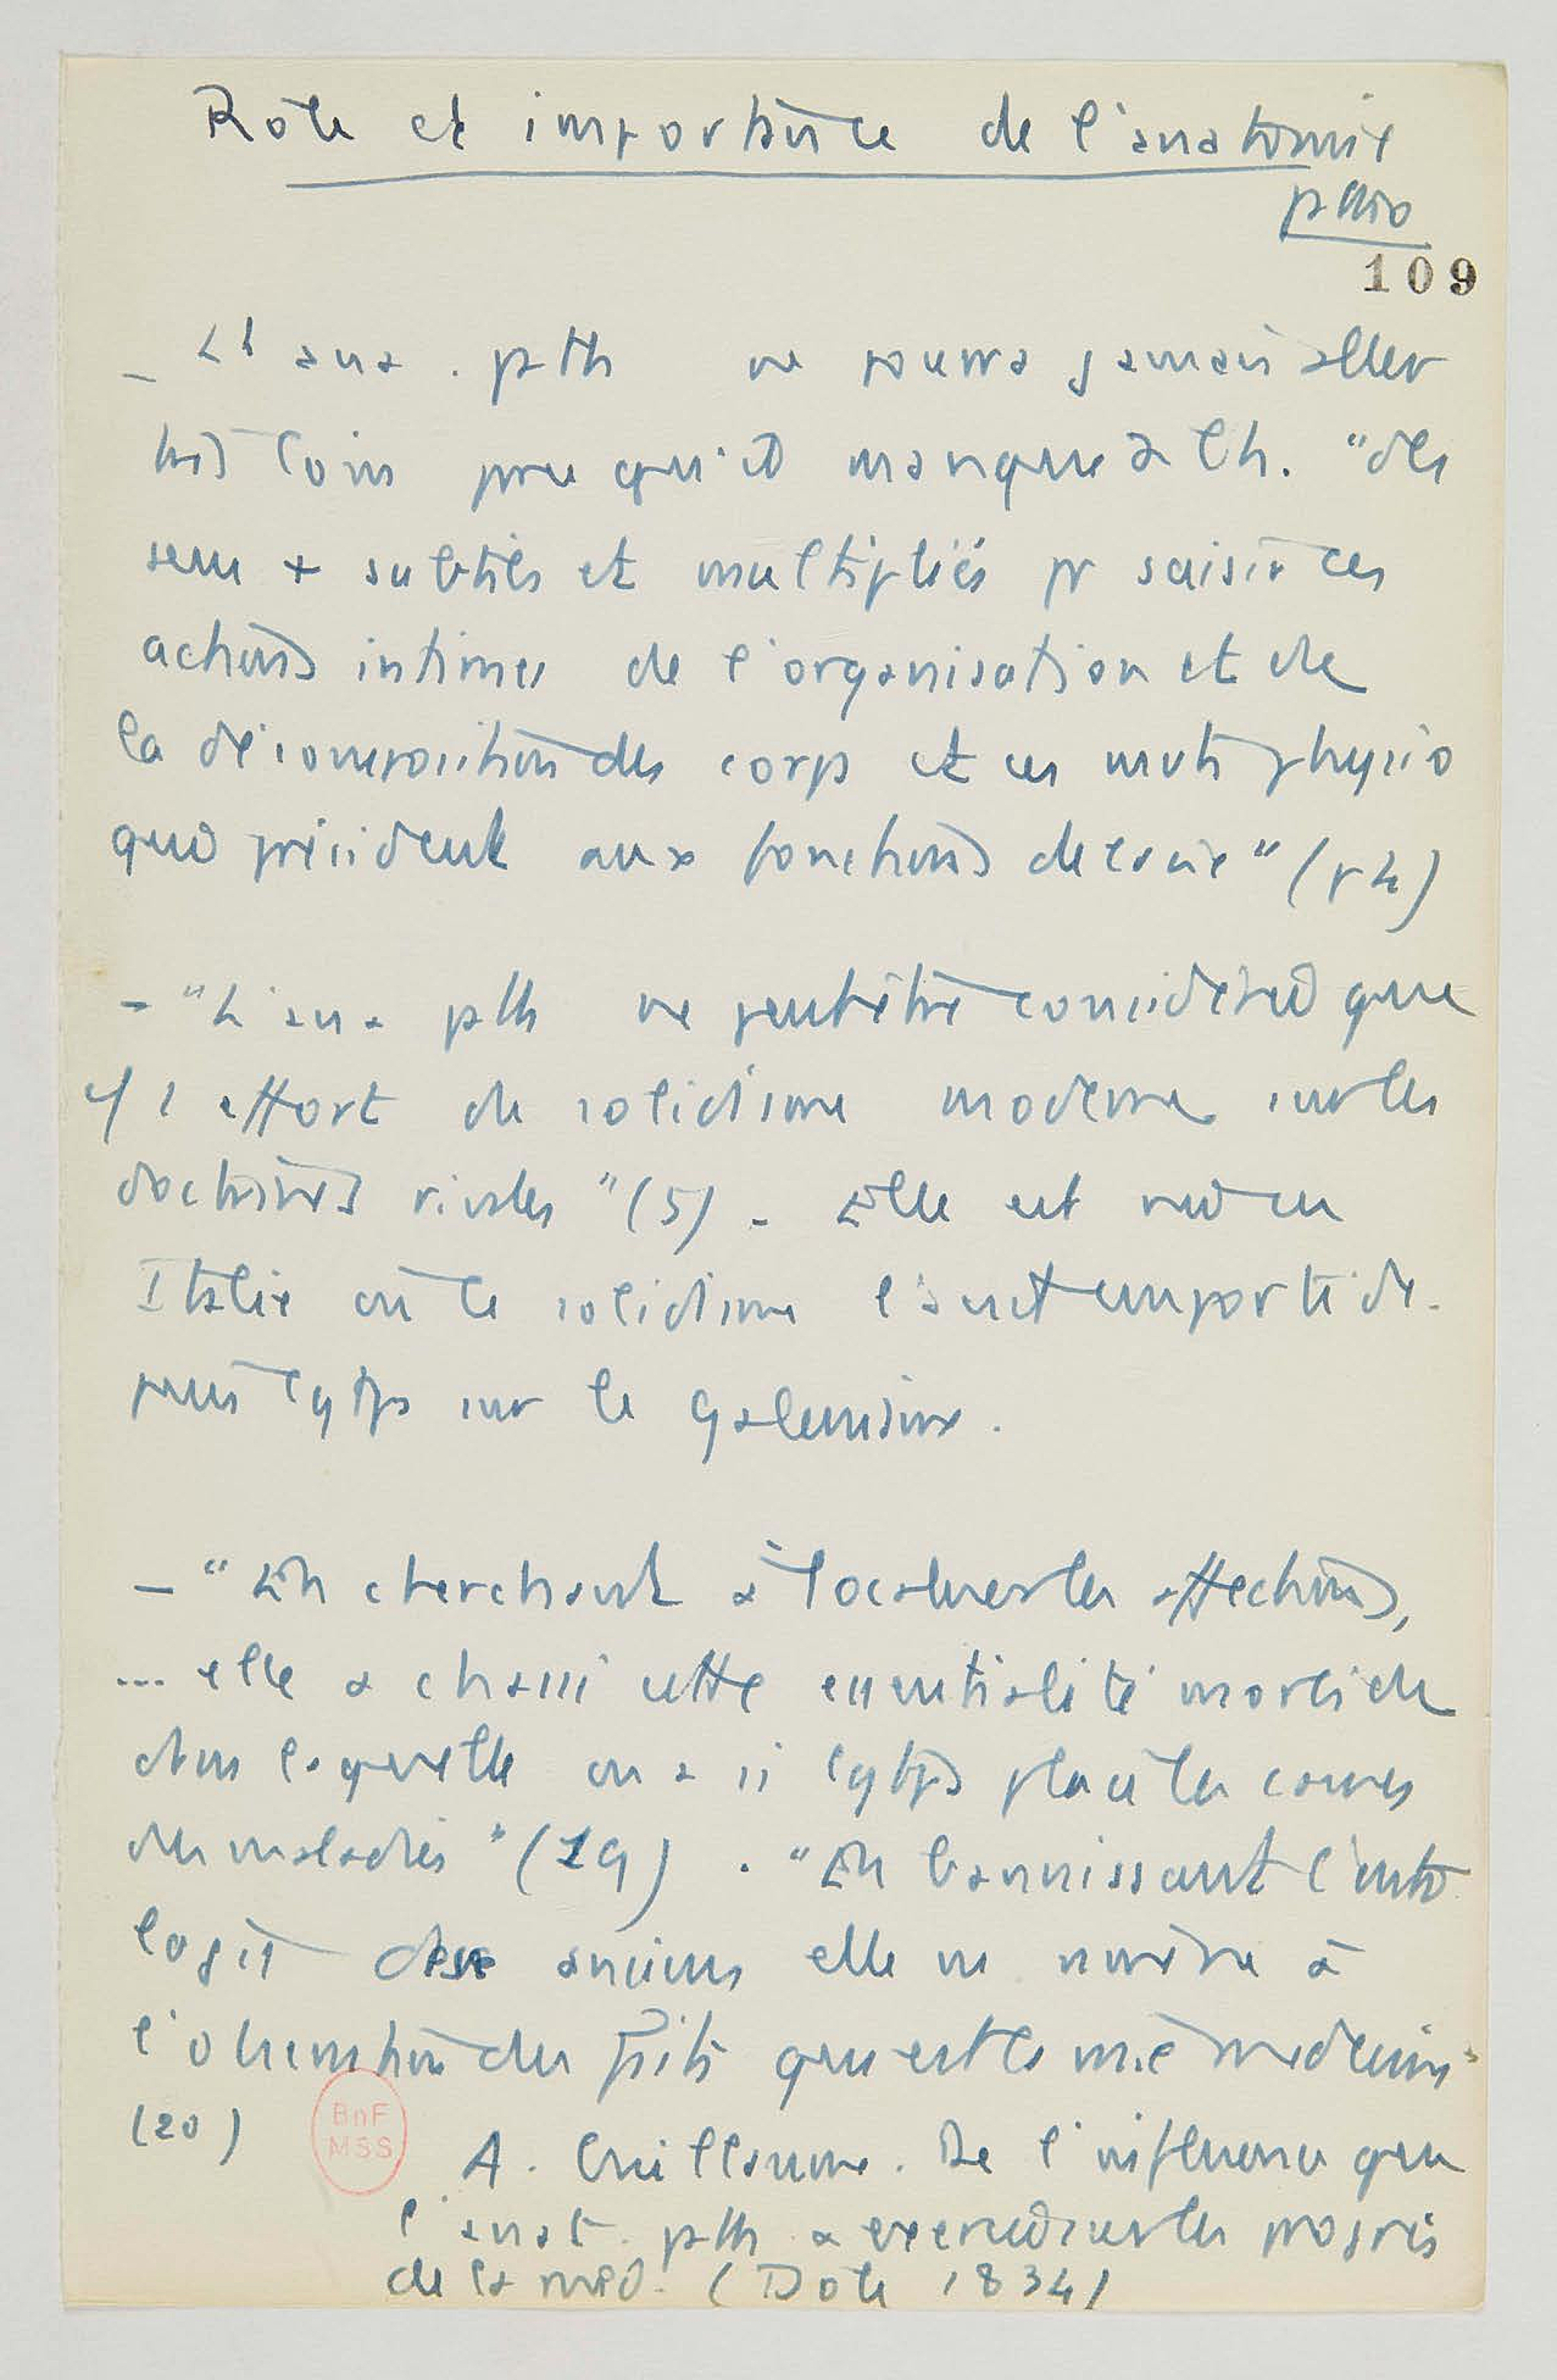 Rôle et importance de l'anatomie
patho
109
_ L' ana. path ne pourra jamais aller
très loin pcque qu'il manque à l'h. "des
sens + subtils et multipliés pr saisir ces
actions intimes de l'organisation et de
la décomposition des corps et ces mvts physio
qui président aux fonctions de la vie" (p 4)
- "L'ana path ne peut être considérée que
c/ l effort de solidisme moderne sur les
doctrines rivales" (5). Elle est née en
Italie où le solidisme l'avait emporté de-
puis lgtps sur le galenisme.
_ "En cherchant à localiser les affections,
... elle a chassé cette essentialité morbide
dans laquelle on a si lgtps placé les causes
des maladies" (19). "En bannissant l'onto
logie des anciens elle ns ramène à
l'observation des faits qui est la vraie médecine"
(20)
BnF
MSS
A. Guillaume. De l'influence que
l'anat. path a exercée sur les progrès
de la méd. (Dole 1834)